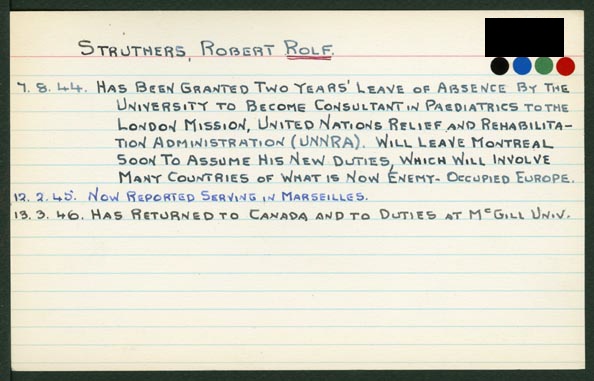 STRUTHERS, ROBERT ROLF.
7.8.44. HAS BEEN GRANTED TWO YEARS' LEAVE OF ABSENCE BY THE
UNIVERSITY TO BECOME CONSULTANT IN PAEDIATRICS TO THE
LONDON MISSION, UNITED NATIONS RELIEF AND REHABILITA-
TION ADMINISTRATION (UNNRA). WILL LEAVE MONTREAL
SOON TO ASSUME HIS NEW DUTIES, WHICH WILL INVOLVE
MANY COUNTRIES OF WHAT IS NOW ENEMY-OCCUPIED EUROPE.
12.2.45. NOW REPORTED SERVING IN MARSEILLES.
13.3.46. HAS RETURNED TO CANADA AND TO DUTIES AT McGILL UNIV.